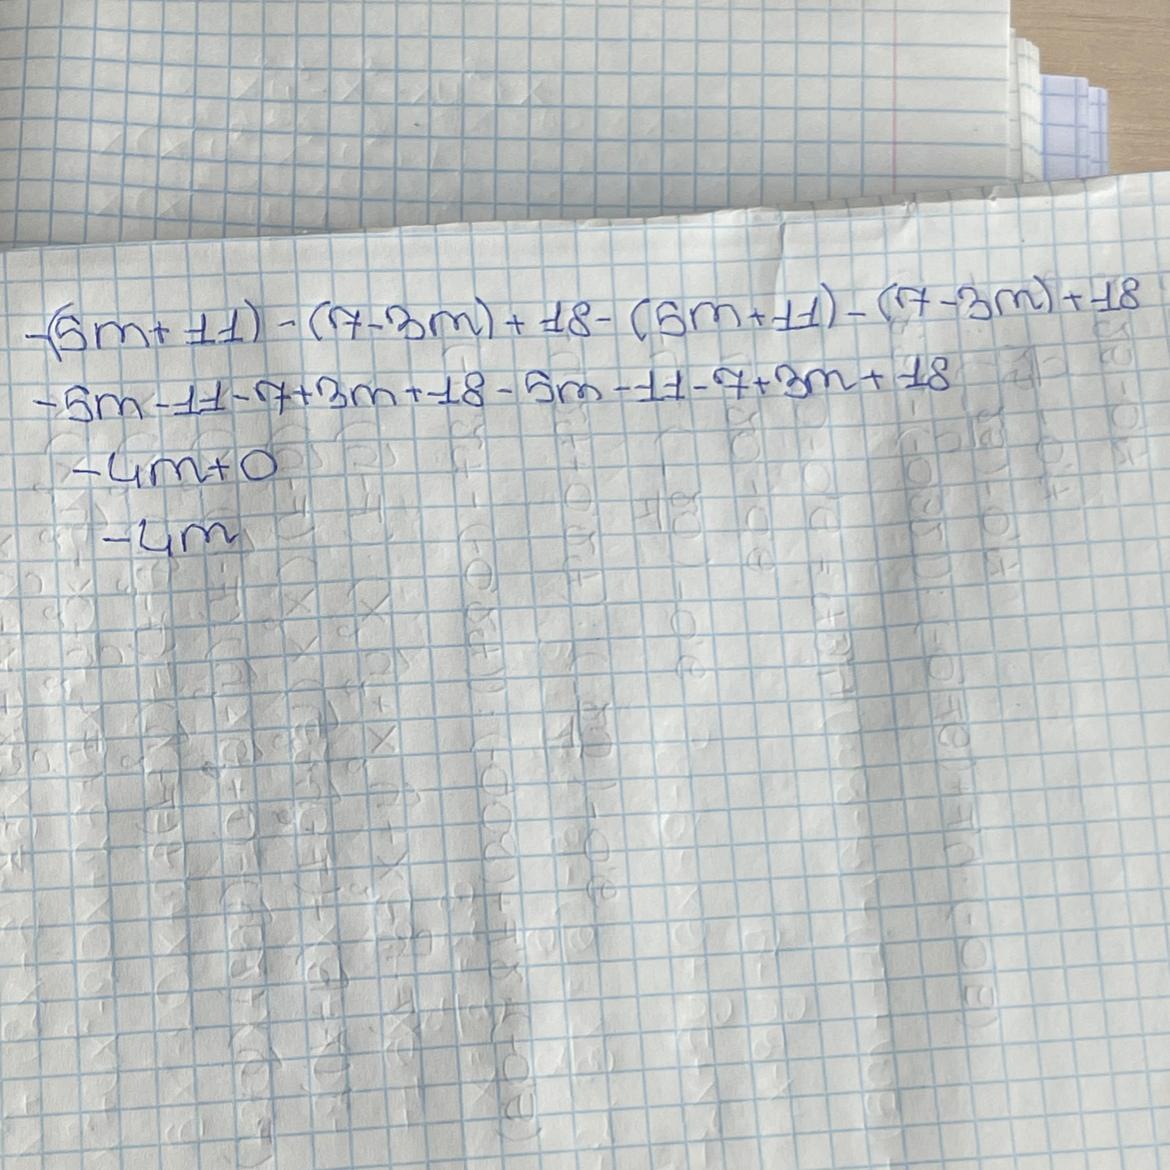 -(5m+11)-(7-3m)+18-(5m+11)-(7-3m)+18
-5m-11-7+3m+18-5m-11-7+3m+18
-4m+0
-4m